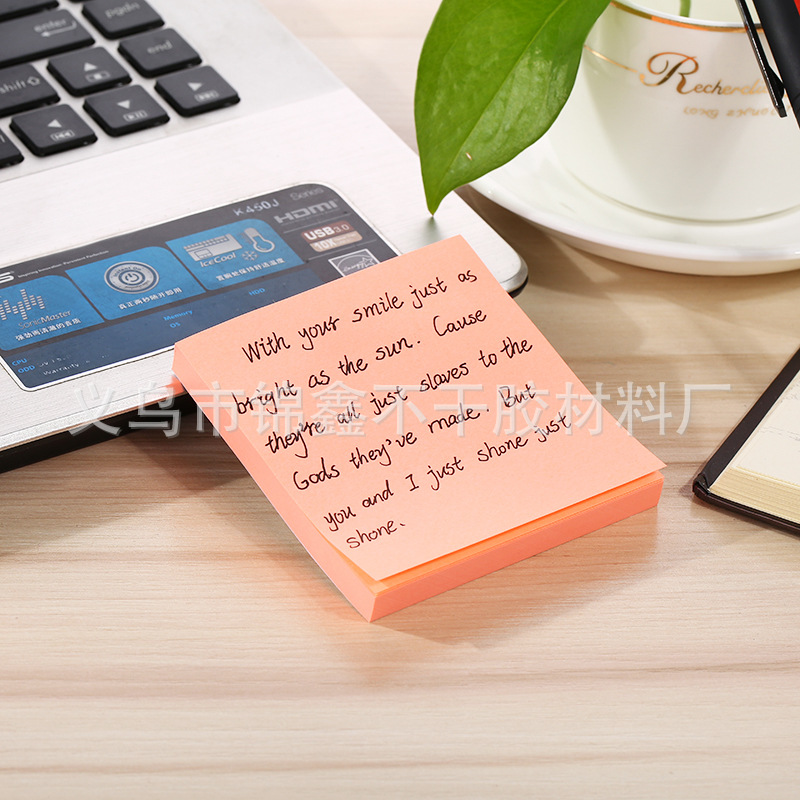 enter
pgdn
shift
end
pgup
pgdn
K450J
Series
HDMI
USB3.0
10X
IceCool
SonicMaster
Memory
HDD
CPU
OS
ODD
Warranty
Recherche
With your smile just as
bright as the sun. Cause
they're all just slaves to the
Gods they've made. But
you and I just shone just
shone.
义乌市锦鑫不干胶材料厂